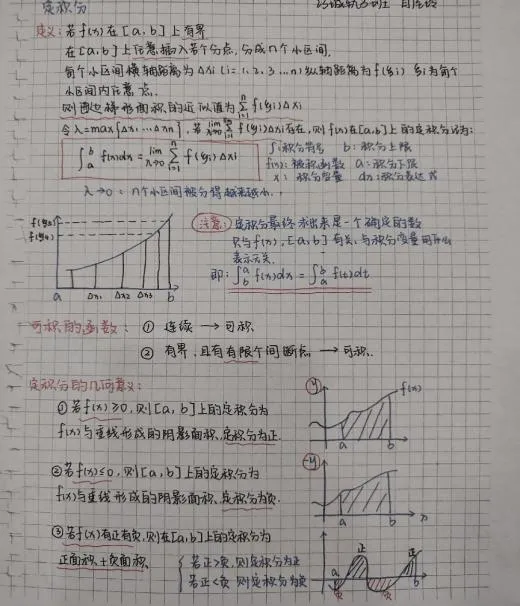 定积分
定义:若f(x)在[a,b]上有界
在[a,b]上任意插入若干分点,分成n个小区间,
每个小区间横轴距离为Δxi(i=1,2,3…n)纵轴距离为f(ξi) ξi为每个
小区间内任意点.
则曲边梯形面积的近似值为 n∑i=1 f(ξi)Δxi
令λ=max{Δx1,…Δxn},若 lim λ→0 n∑i=1 f(ξi)Δxi存在,则f(x)在[a,b]上的定积分记为:
∫ba f(x)dx = lim λ→0 n∑i=1 f(ξi)Δxi
∫:积分符号 b:积分上限
f(x):被积函数 a:积分下限
x:积分变量 dx:积分表达式
λ→0:n个小区间被分得越来越小
f(ξ3)
f(ξ2)
a Δx1 Δx2 Δx3 b
注意:定积分最终求出来是一个确定的数
只与f(x),[a,b]有关,与积分变量用
表示无关.
即:∫ab f(x)dx = ∫ba f(t)dt
可积的函数:① 连续 → 可积
② 有界,且有有限个间断点 → 可积.
定积分的几何意义:
①若f(x)≥0,则[a,b]上的定积分为
f(x)与直线形成的阴影面积,定积分为正.
y f(x)
a b
②若f(x)≤0,则[a,b]上的定积分为
f(x)与直线形成的阴影面积,定积分为负.
-y
a b x
③若f(x)有正有负,则在[a,b]上的定积分为
正面积+负面积
若正>负,则定积分为正
若正<负 则定积分为负
a 正 正 b
负 负